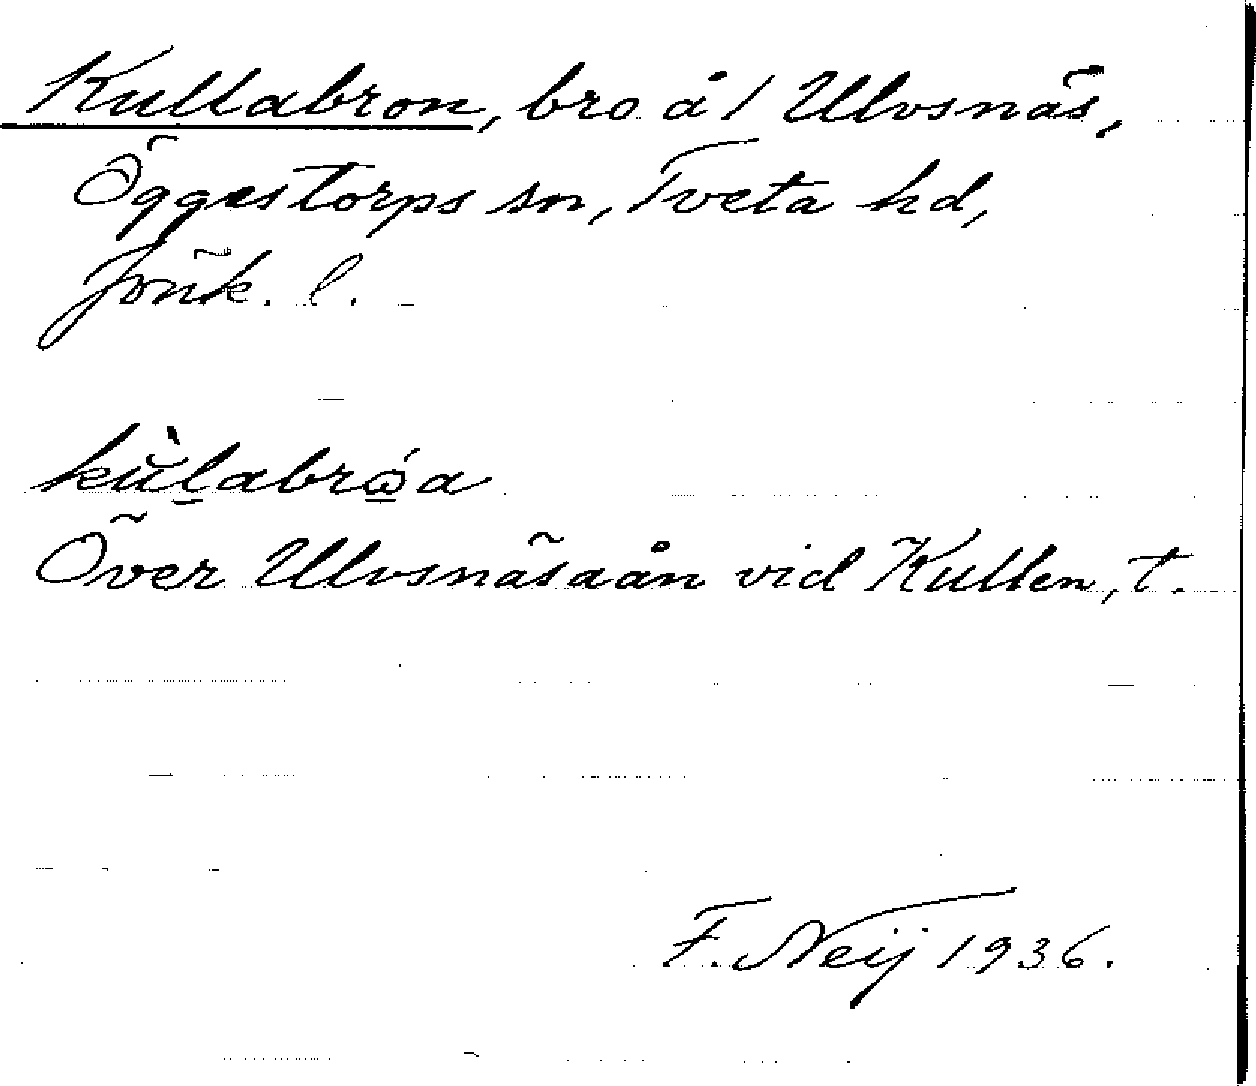 Kullabron, bro å 1 Ulvsnäs,
Öggestorps sn, Tveta hd,
Jönk. l.
kùlabrǿa
Över Ulvsnäsaån vid Kullen, t.
F. Neij 1936.